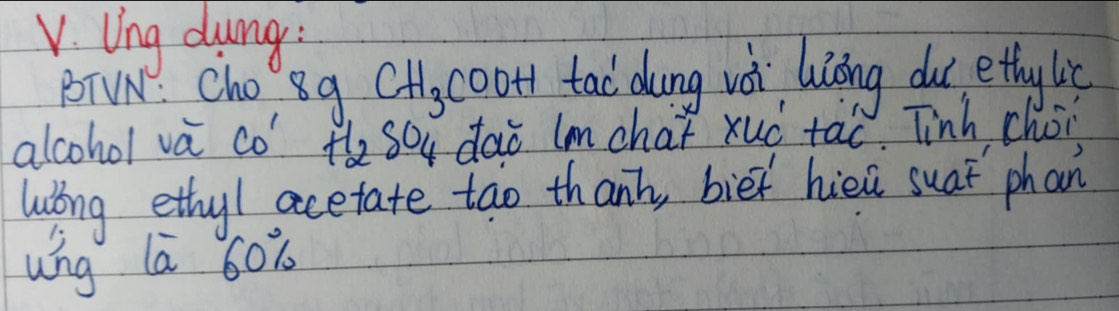 V. Ứng dụng:
BTVN: Cho 8g CH₃COOH tác dụng với lượng dư ethylic
alcohol và có H₂SO₄ đặc làm chất xúc tác. Tính khối
lượng ethyl acetate tạo thành, biết hiệu suất phản
ứng là 60%